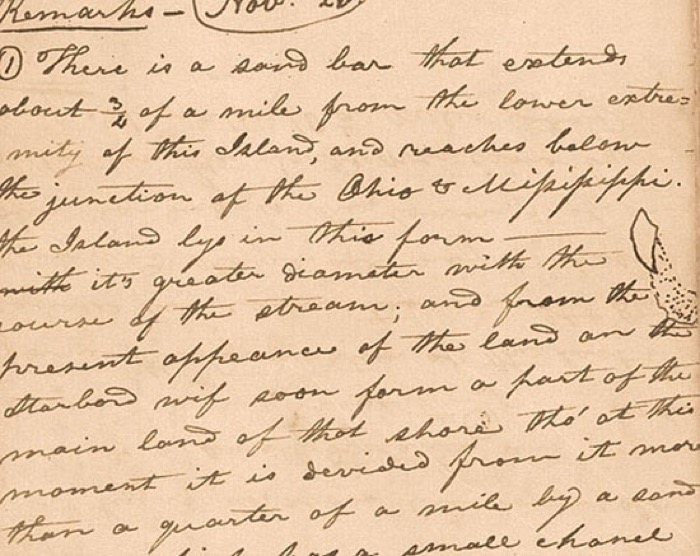 Remarks — Nov. 20.
① There is a sand bar that extends
about 3/4 of a mile from the lower extre=
mity of this Island, and reaches below
the junction of the Ohio & Mississippi.
the Island lys in this form —
with it's greater diameter with the
course of the stream; and from the
present appeance of the land on the
Starbord will soon form a part of the
main land of that shore tho' at this
moment it is devided from it more
than a quarter of a mile by a sand
has a small chanel